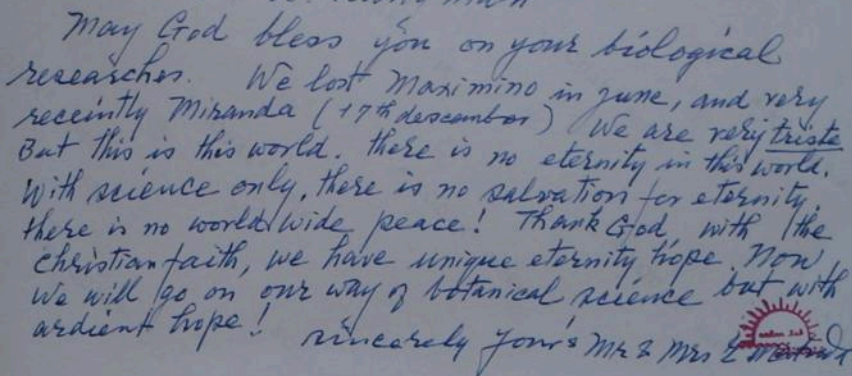 May God bless you on your biological
researches. We lost Maximino in june, and very
recently Miranda (17th descember) We are very triste
But this is this world. there is no eternity in this world.
With science only, there is no salvation for eternity.
there is no world wide peace! Thank God, with the
christian faith, we have unique eternity hope. Now
We will go on our way of botanical science but with
ardient hope!
sincerely Your's Mr & Mrs E